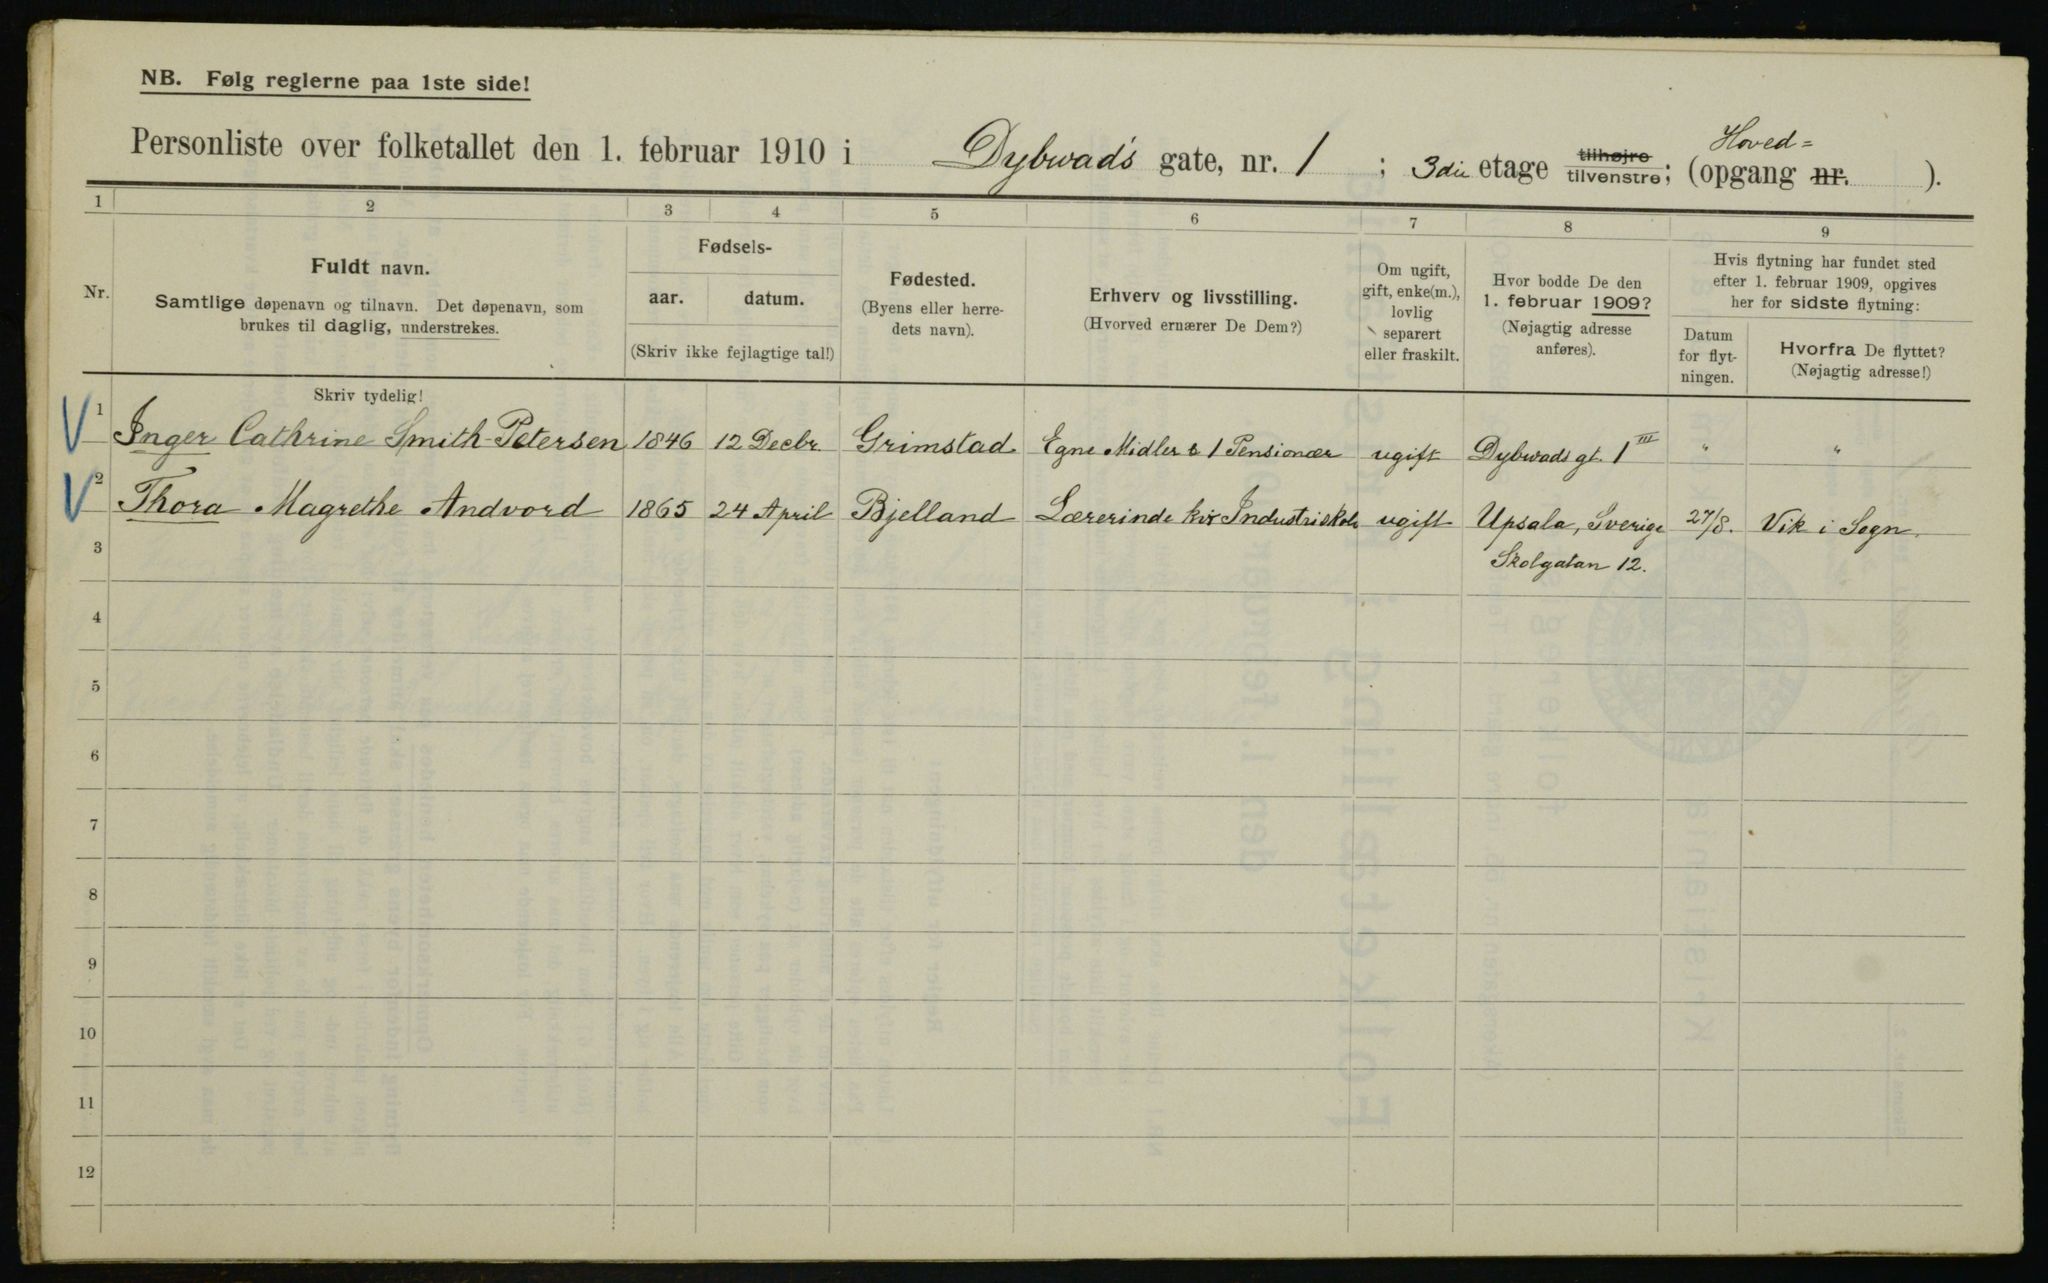 NB. Følg reglerne paa 1ste side!
Personliste over folketallet den 1. februar 1910 i Dybwad's gate, nr. 1 ; 3die etage tilhøjre tilvenstre; (opgang nr. Hoved= ).
1 2 3 4 5 6 7 8 9
Nr.
Fuldt navn.
Samtlige døpenavn og tilnavn. Det døpenavn, som
brukes til daglig, understrekes.
Fødsels-
aar. datum.
(Skriv ikke fejlagtige tal!)
Fødested.
(Byens eller herre-
dets navn).
Erhverv og livsstilling.
(Hvorved ernærer De Dem?)
Om ugift,
gift, enke(m.),
lovlig
separert
eller fraskilt.
Hvor bodde De den
1. februar 1909?
(Nøjagtig adresse
anføres).
Hvis flytning har fundet sted
efter 1. februar 1909, opgives
her for sidste flytning:
Datum
for flyt-
ningen.
Hvorfra De flyttet?
(Nøjagtig adresse!)
Skriv tydelig!
1 Inger Cathrine Smith-Petersen 1846 12 Decbr. Grimstad Egne Midler & 1 Pensionær ugift Dybwads gt. 1 III " "
2 Thora Magrethe Andvord 1865 24 April Bjelland Lærerinde kv. Industriskole ugift Upsala, Sverige 27/8. Vik i Sogn.
3 Skolgatan 12.
4
5
6
7
8
9
10
11
12